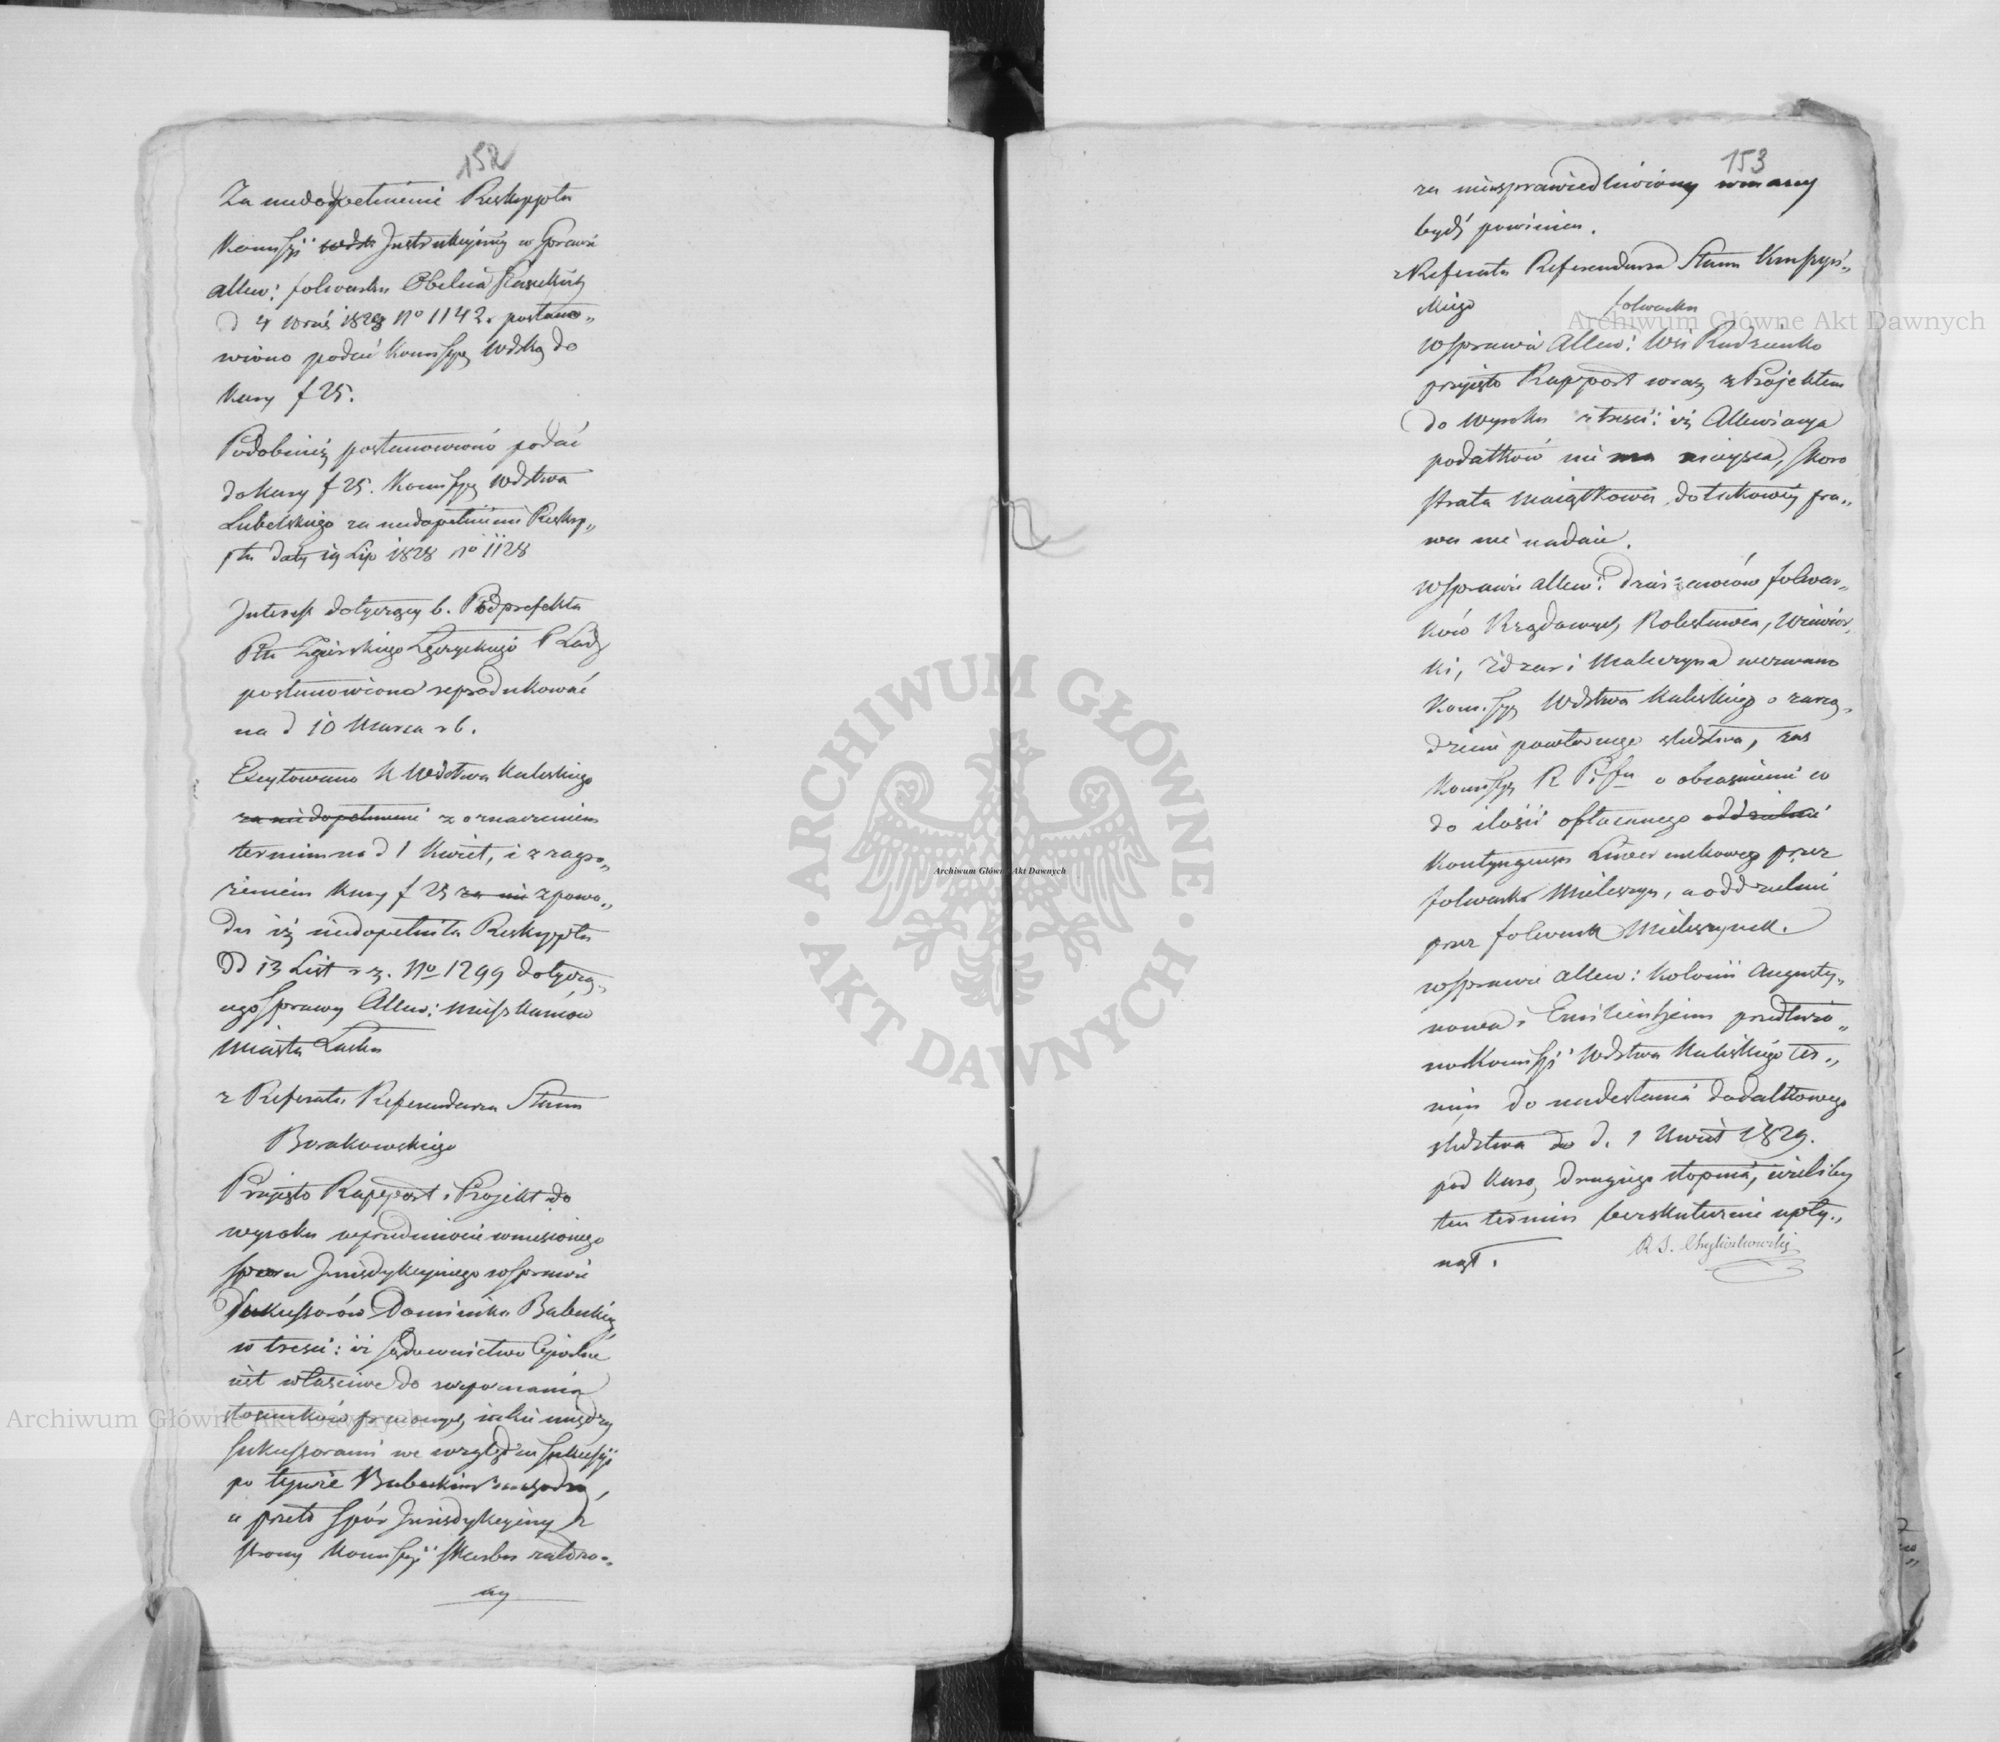 152
Za niedopełnienie Reskryptu
Kommissji Instrukcyiney w sprawie
Allew: folwarku
d 4 Wrześ 1828 No 1142. postano„
wiono podać Kommissyę Wdską do
kary f 25.
Podobnież postanowiono podać
do kary f 25. Kommissyę Wdztwa
Lubelskiego za niedopełnienie Reskry„
ptu daty 19 Lip 1828 No 1128
Interess dotyczący b. Podprefekta
Ptu Zgierskiego
postanowiono reprodukować
na d 10 Marca r b.
Excytowano K Wdztwa Kaliskiego
za niedopełnienie z oznaczeniem
terminu na d 1 Kwiet, i z zagro„
żeniem kary f 25 za nie z powo„
du iż niedopełniła Reskryptu
d 13 List r z. No 1299 dotyczą„
cego sprawy Allew: mieszkańców
Miasta Łasku
z Referatu Referendarza Stanu
Borakowskiego
Przyięto Rapport i Projekt do
wyroku w przedmiocie wniesionego
sporu Jurisdykcyinego w sprawie
Sukcessorów Dominika
w treści: iż sądownictwo Cywilne
iest właściwe do rozpoznania
stosunków prawnych iakie między
sukcessorami we względzie sukcessyi
po tymże zachodzą,
a przeto spór Jurisdykcyiny z
strony Kommissyi Skarbu zaszło„
ny
153
za niesprawiedliwiony uznany
bydź powinien.
z Referatu Referendarza Stanu Kruszyń„
skiego
folwarku
W sprawie Allew: Wsi Rudzienko
przyięto Rapport wraz z Projektem
do Wyroku z treści: iż Allewiacya
podatków nie ma mieysca, skoro
strata maiątkowa do takowey pra„
wa nie nadaie.
W sprawie Allew: Dzierżawców folwar„
ków Rządowych Bolesławca, Wiewiór
ki, Żdzar i Mieleszyna wezwano
Kommissyę Wdztwa Kaliskiego o zarzą„
dzenie powtórnego śledztwa, zaś
Kommissyę R P. i Sku o obiaśnienie co
do ilości opłacanego oddzielnie
Kontyngensu Liwerunkowego przez
folwark Mieleszyn, a oddzielnie
przez folwark Mieleszynek.
W sprawie Allew: Kolonii Augusty„
nowa i przedłużo„
no Kommissyi Wdztwa Kaliskiego ter„
min do nadesłania dodatkowego
śledztwa do d. 1 Kwiet 1829.
pod karą drugiego stopnia, ieżeliby
ten termin bezskutecznie upły„
nął.
R S. Chyliczkowski